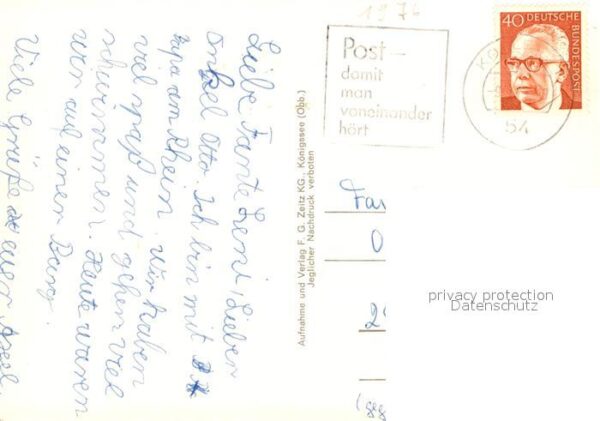 Liebe Tante Leni, Lieber
Onkel Otto. Ich bin mit
Papa am Rhein. Wir haben
viel spaß und gehen viel
schwimmen. Heute waren
wir auf einer Burg.
Viele Grüße euer Axel
Aufnahme und Verlag F. G. Zeitz KG., Königssee (Obb.)
Jeglicher Nachdruck verboten
1974
Post –
damit
man
voneinander
hört
KO
54
40 DEUTSCHE
BUNDESPOST
Fa
O
privacy protection
Datenschutz